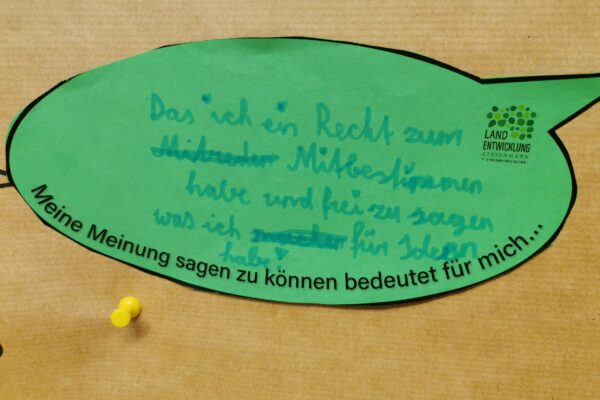 Das ich ein Recht zum
Mitreden Mitbestimmen
habe und frei zu sagen
was ich machen für Ideen
habe
Meine Meinung sagen zu können bedeutet für mich...
LAND
ENTWICKLUNG
STEIERMARK